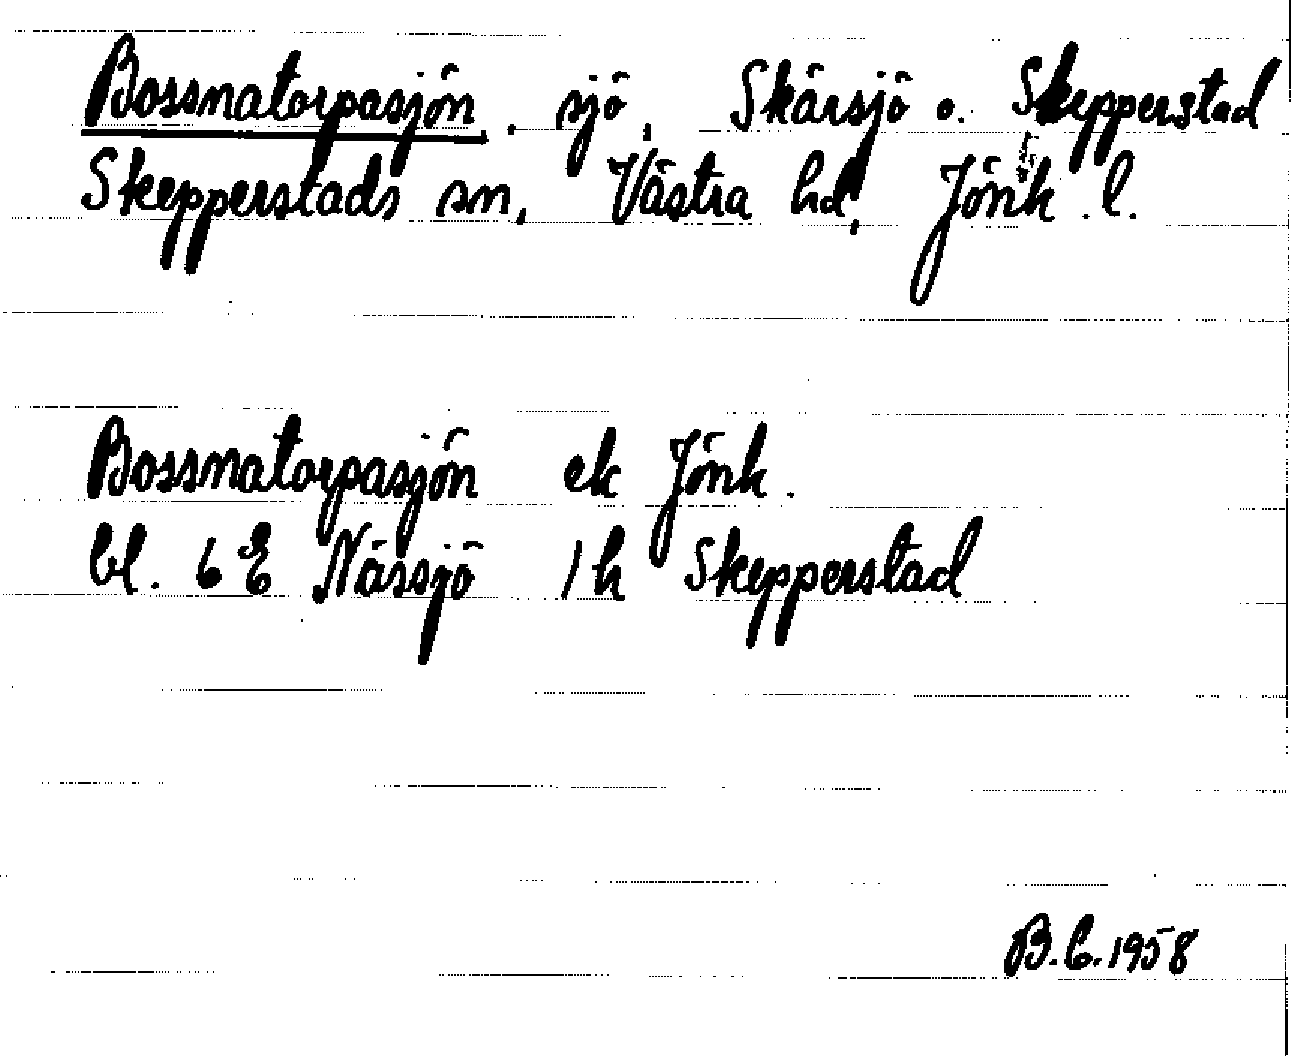 Bossmatorpasjön, sjö, Skärsjö o. Skepperstad
Skepperstads sn, Västra hd, Jönk. l.
Bossmatorpasjön ek Jönk.
bl. 6 E Nässjö 1 h Skepperstad
B.C. 1958